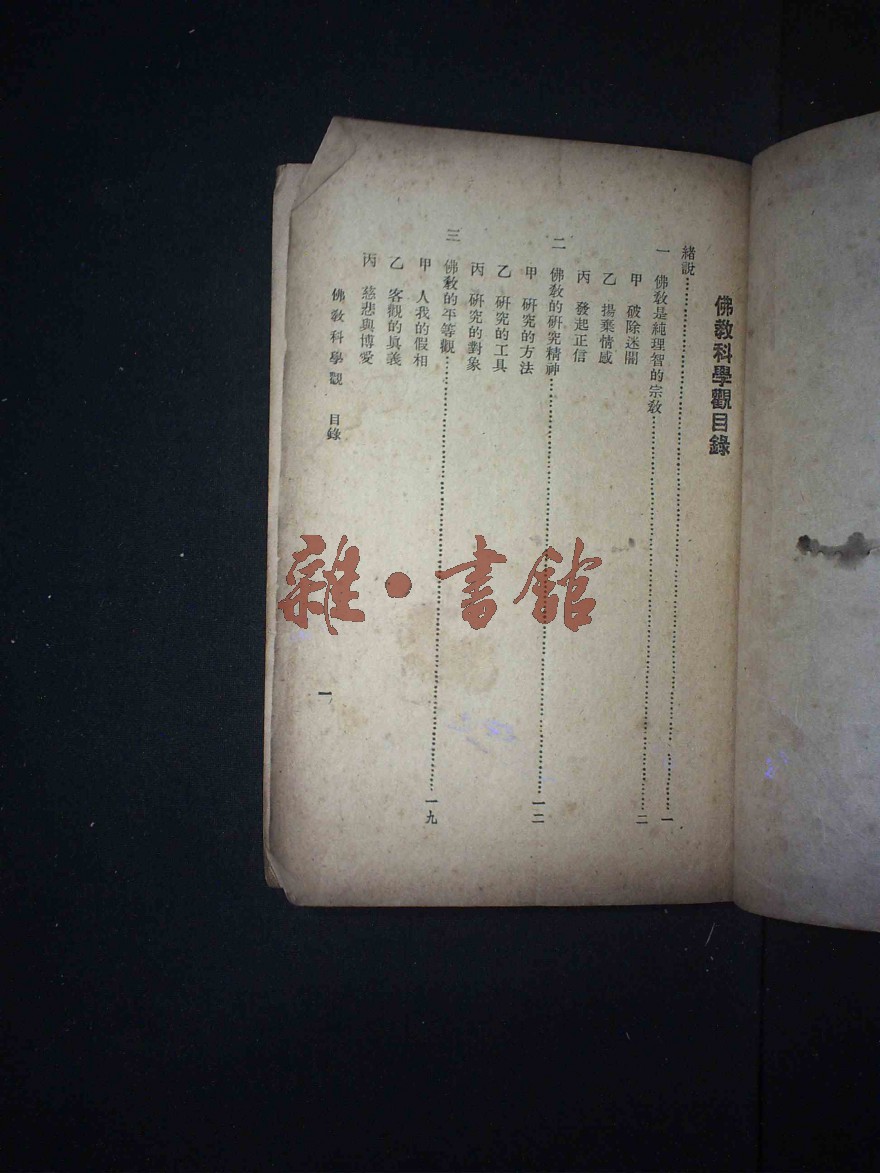 佛教科學觀目錄
緒說……………………一
一 佛教是純理智的宗教……………………二
甲 破除迷闇
乙 揚棄情感
丙 發起正信
二 佛教的研究精神……………………一二
甲 研究的方法
乙 研究的工具
丙 研究的對象
三 佛教的平等觀……………………一九
甲 人我的假相
乙 客觀的真義
丙 慈悲與博愛
佛教科學觀 目錄
一
雜·書館